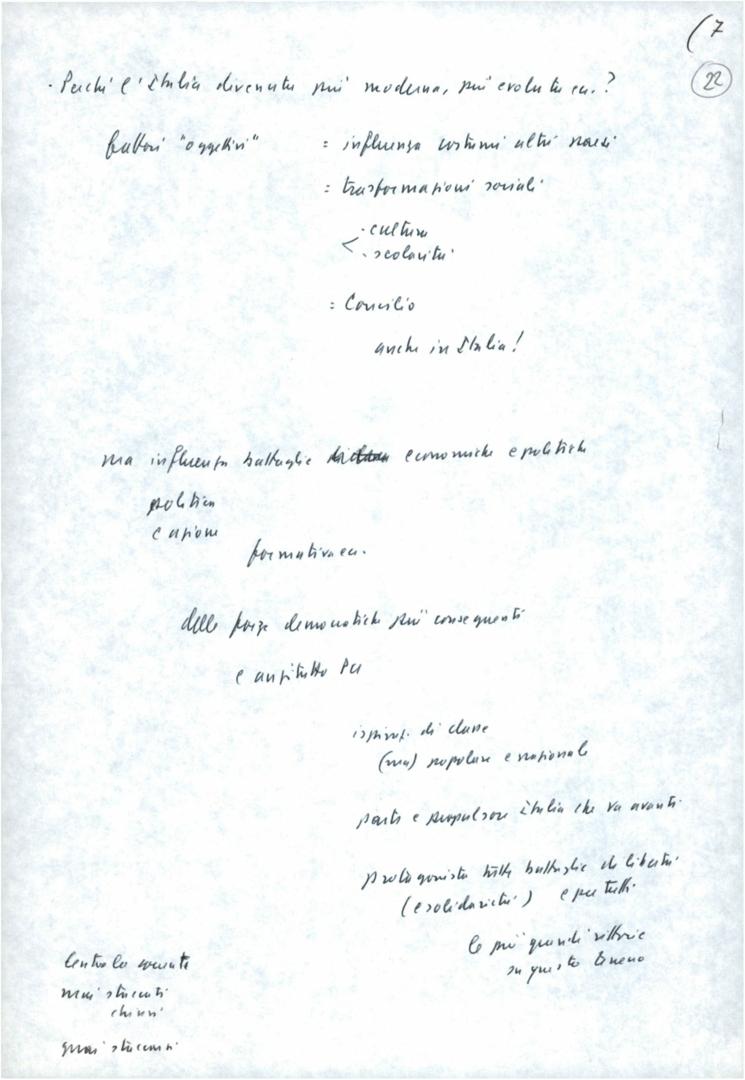 (7
22
· Perché l'Italia divenuta più moderna, più evoluta ecc.?
fattori "oggettivi" = influenza costumi altri paesi
= trasformazioni sociali
< · cultura
· scolarità
= Concilio
anche in Italia!
ma influenza battaglie economiche e politiche
politica
e azione
formativa ecc.
delle forze democratiche più conseguenti
e anzitutto Pci
ispiraz. di classe
(ma) popolare e nazionale
parte e propulsore Italia che va avanti
protagonista tutte battaglie di libertà
(e solidarietà) e per tutti
le più grandi vittorie
su questo terreno
mai staccati
chiusi
guai staccarsi